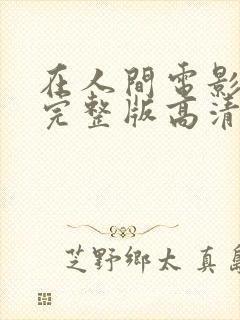 在人間電影
完整版高清
芝野鄉太 真島